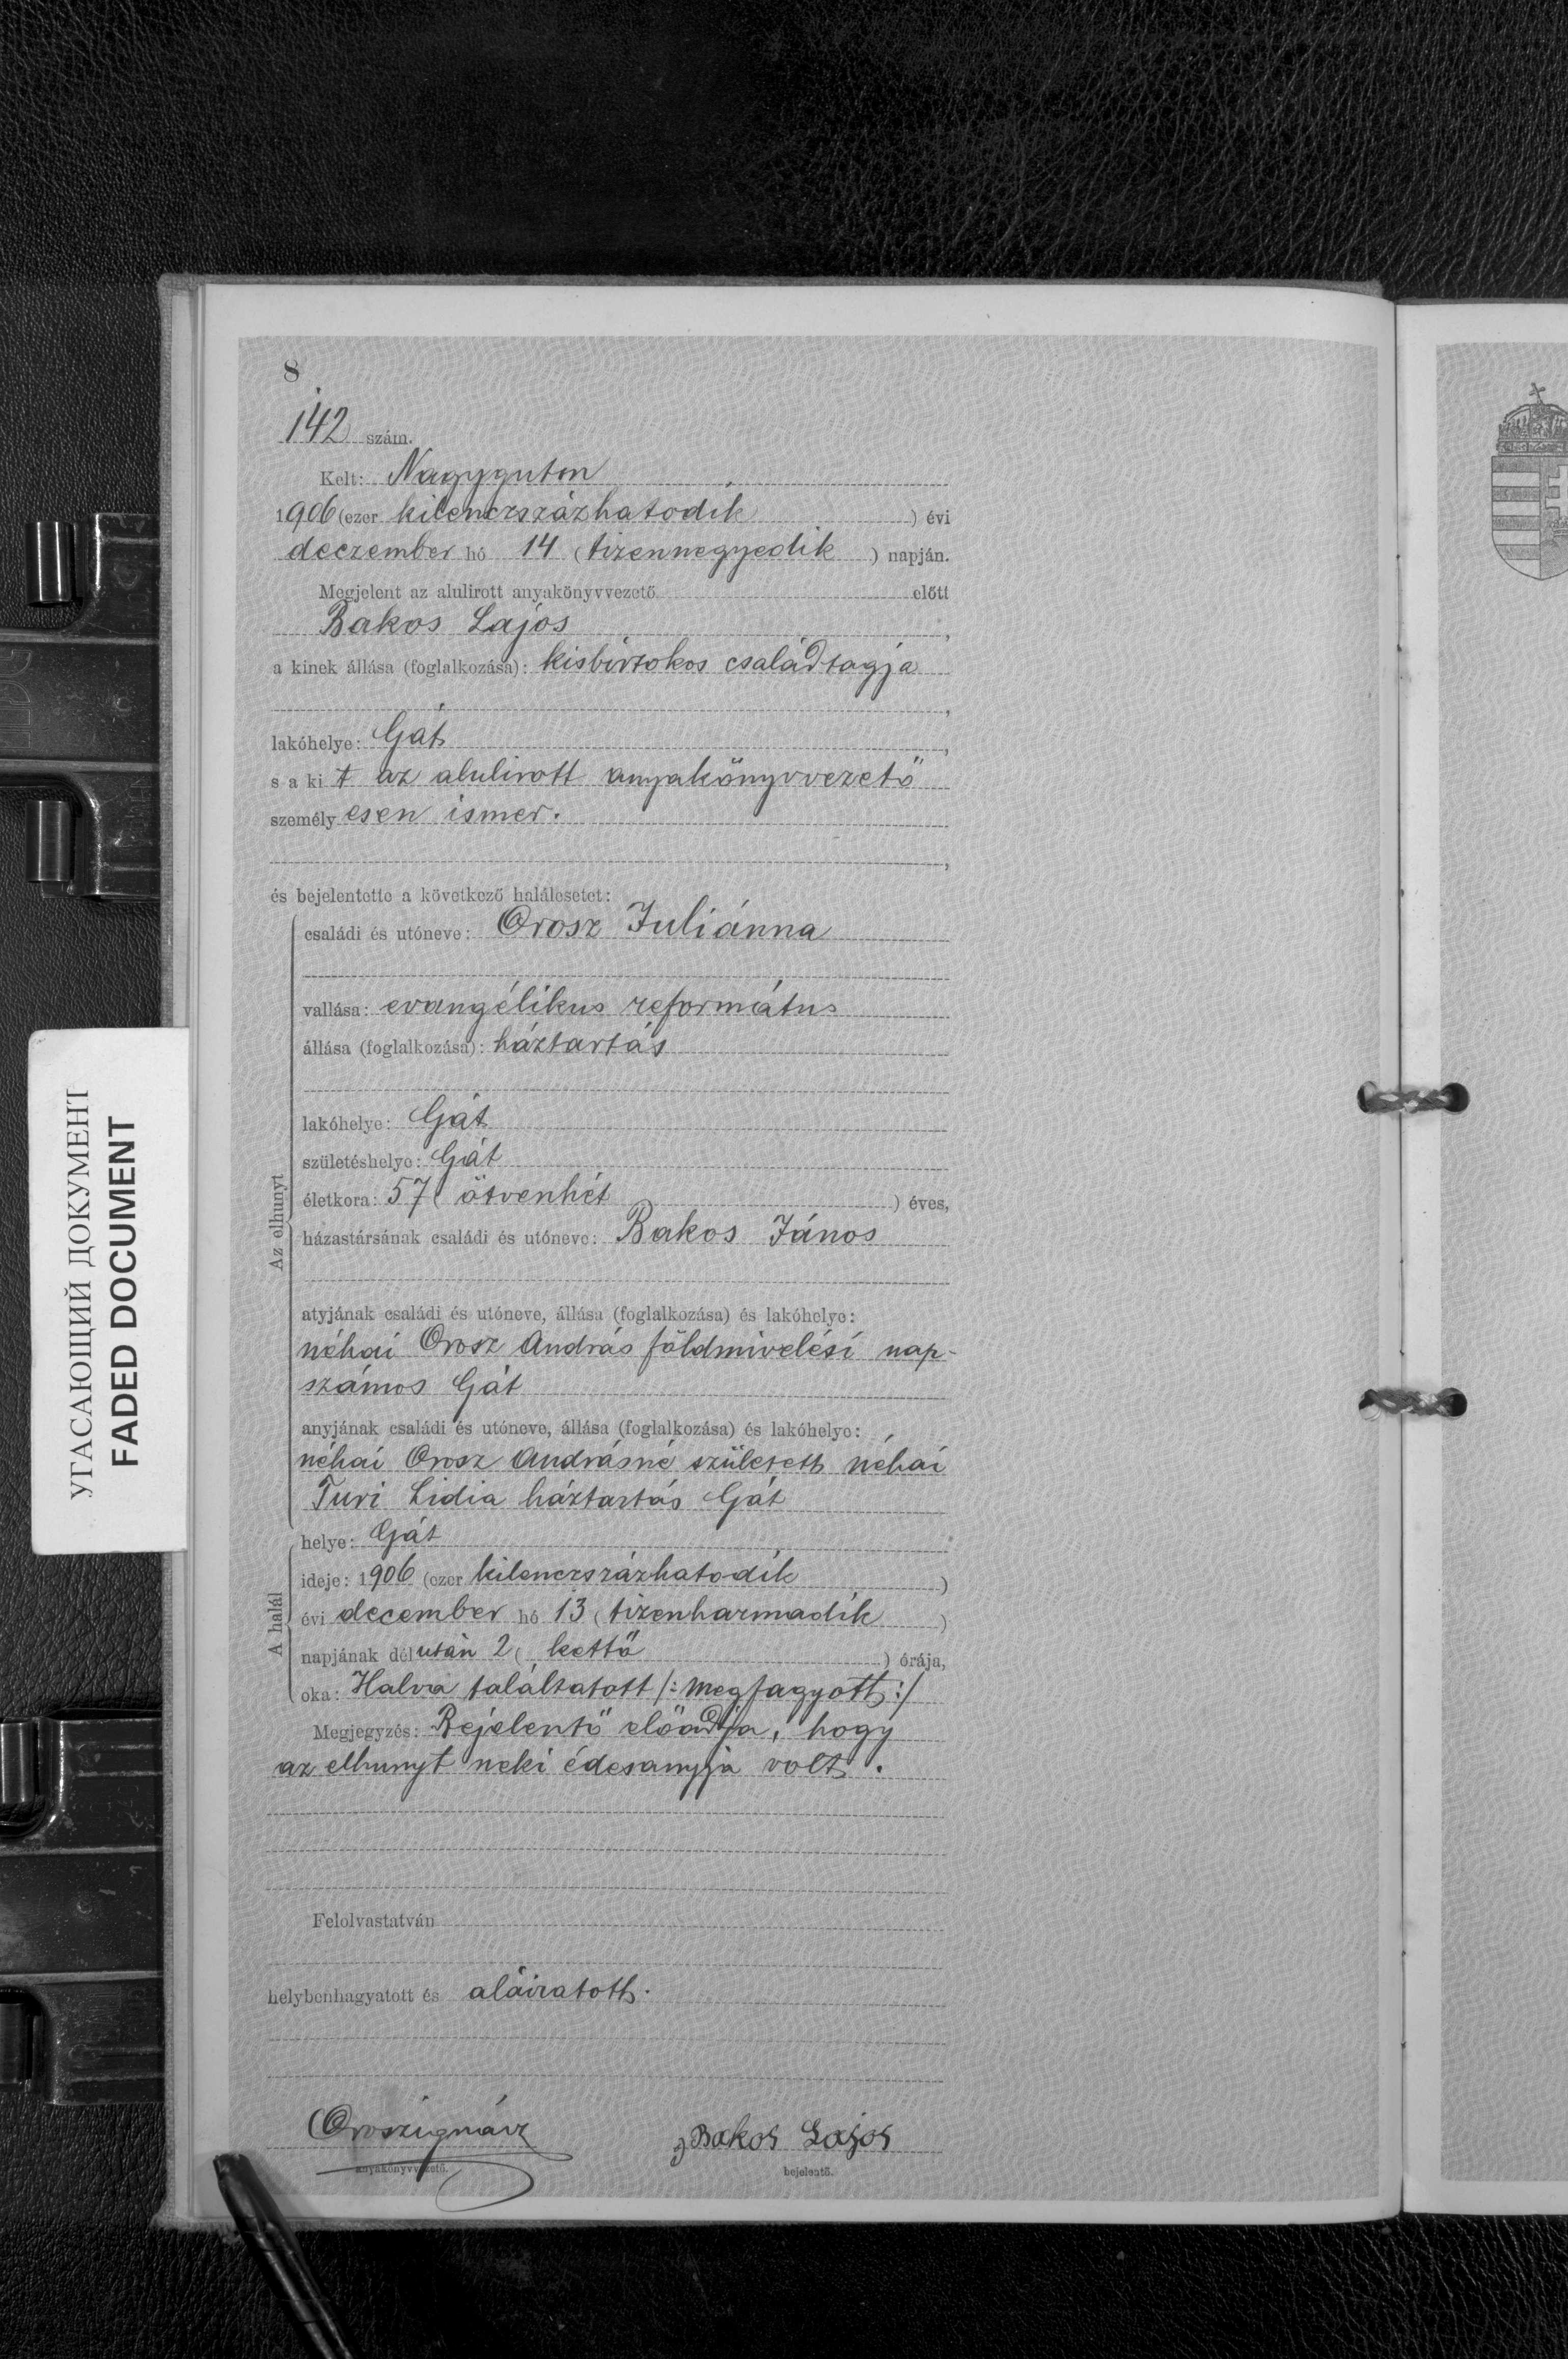 8
142 szám.
Kelt: Nagyguton
1906 (ezer kilenczszázhatodik ) évi
deczember hó 14 (tizennegyedik ) napján.
Megjelent az alulirott anyakönyvvezető előtt
Bakos Lajos ,
a kinek állása (foglalkozása): kisbirtokos családtagja
,
lakóhelye: Gát ,
s a kit az alulirott anyakönyvvezető
személyesen ismer.
,
és bejelentette a következő halálesetet:
Az elhunyt
családi és utóneve: Orosz Juliánna
vallása: evangélikus református
állása (foglalkozása): háztartás
lakóhelye: Gát
születéshelye: Gát
életkora: 57 ( ötvenhét ) éves,
házastársának családi és utóneve: Bakos János
atyjának családi és utóneve, állása (foglalkozása) és lakóhelye:
néhai Orosz András földmivelési nap-
számos Gát
anyjának családi és utóneve, állása (foglalkozása) és lakóhelye:
néhai Orosz Andrásné született néhai
Turi Lidia háztartás Gát
A halál
helye: Gát
ideje: 1906 (ezer kilenczszázhatodik )
évi december hó 13 (tizenharmadik )
napjának délután 2 ( kettő ) órája,
oka: Halva találtatott /: megfagyott :/
Megjegyzés: Bejelentő előadja, hogy
az elhunyt neki édesanyja volt.
Felolvastatván
helybenhagyatott és aláiratott.
Orosz Ignácz Bakos Lajos
anyakönyvvezető. bejelentő.
УГАСАЮЩИЙ ДОКУМЕНТ
FADED DOCUMENT